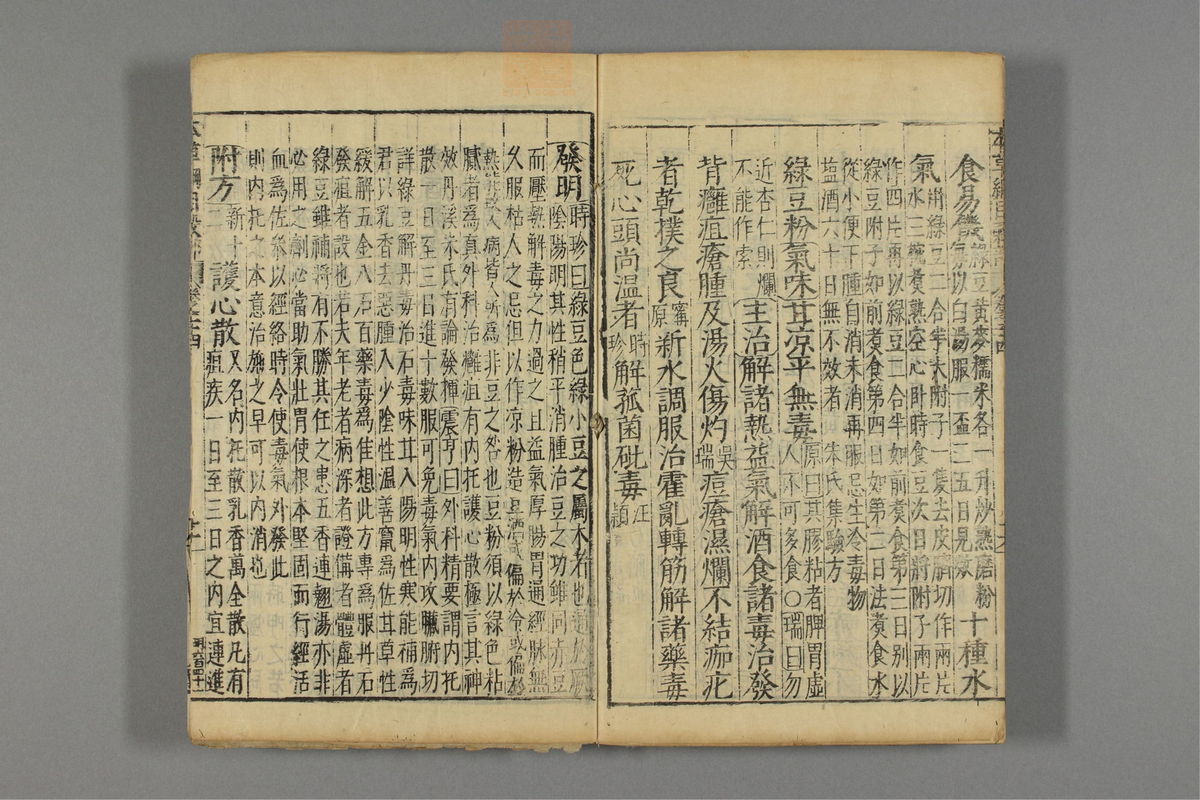 食易飢綠豆黃麥糯米各一升炒熟磨粉
每以白湯服一盃三五日見效十種水
氣用綠豆二合半大附子一隻去皮臍切作兩片
水三碗煑熟空心卧時食豆次日將附子兩片
作四片再以綠豆二合半如前煑食第三日别以
綠豆附子如前煑食第四日如第二日法煑食水
從小便下腫自消未消再服忌生冷毒物
盐酒六十日無不效者朱氏集驗方
綠豆粉氣味甘凉平無毒原曰其膠粘者脾胃虛
人不可多食〇瑞曰勿
近杏仁則爛
不能作索主治解諸熱益氣解酒食諸毒治發
背癰疽瘡腫及湯火傷灼吳瑞痘瘡濕爛不結痂疕
者乾撲之良甯原新水調服治霍亂轉筋解諸藥毒
死心頭尚温者時珍解菰菌砒毒汪頴
發明時珍曰綠豆色綠小豆之屬木者也通於厥
陰陽明其性稍平消腫治豆之功雖同赤豆
而壓熱解毒之力過之且益氣厚腸胃通經脉無
久服枯人之忌但以作凉粉造豆酒或偏於冷或偏於
熱能致人病皆人所為非豆之咎也豆粉須以綠色粘
膩者為真外科治癰疽有内托護心散極言其神
效丹溪朱氏有論發揮震亨曰外科精要謂内托
散一日至三日進十數服可免毒氣内攻臟腑切
詳綠豆解丹毒治石毒味甘入陽明性寒能補為
君以乳香去惡腫入少陰性温善竄為佐甘草性
緩解五金八石百藥毒為使想此方專為服丹石
發疽者設也若夫年老者病深者證備者體虛者
綠豆雖補將有不勝其任之患五香連翹湯亦非
必用之劑必當助氣壯胃使根本堅固而行經活
血為佐參以經絡時令使毒氣外發此
則内托之本意治施之早可以内消也
附方新十二護心散又名内托散乳香萬全散凡有
疽疾一日至三日之内宜連進